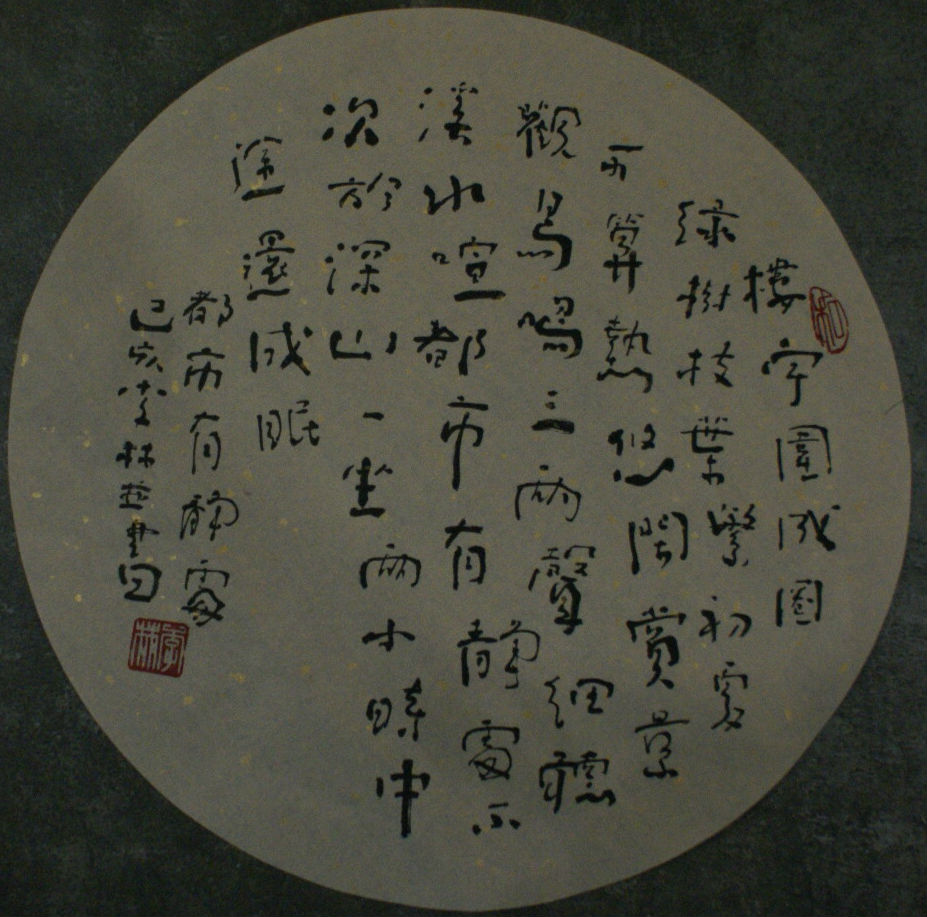 樓宇圍成圈
綠樹枝葉繁初夏
不算熱悠閒賞景
觀鳥鳴三兩聲細聽
溪水喧都市有靜處不
次於深山一坐兩小時中
途還成眠
都市有靜處
己亥李林並書
李林